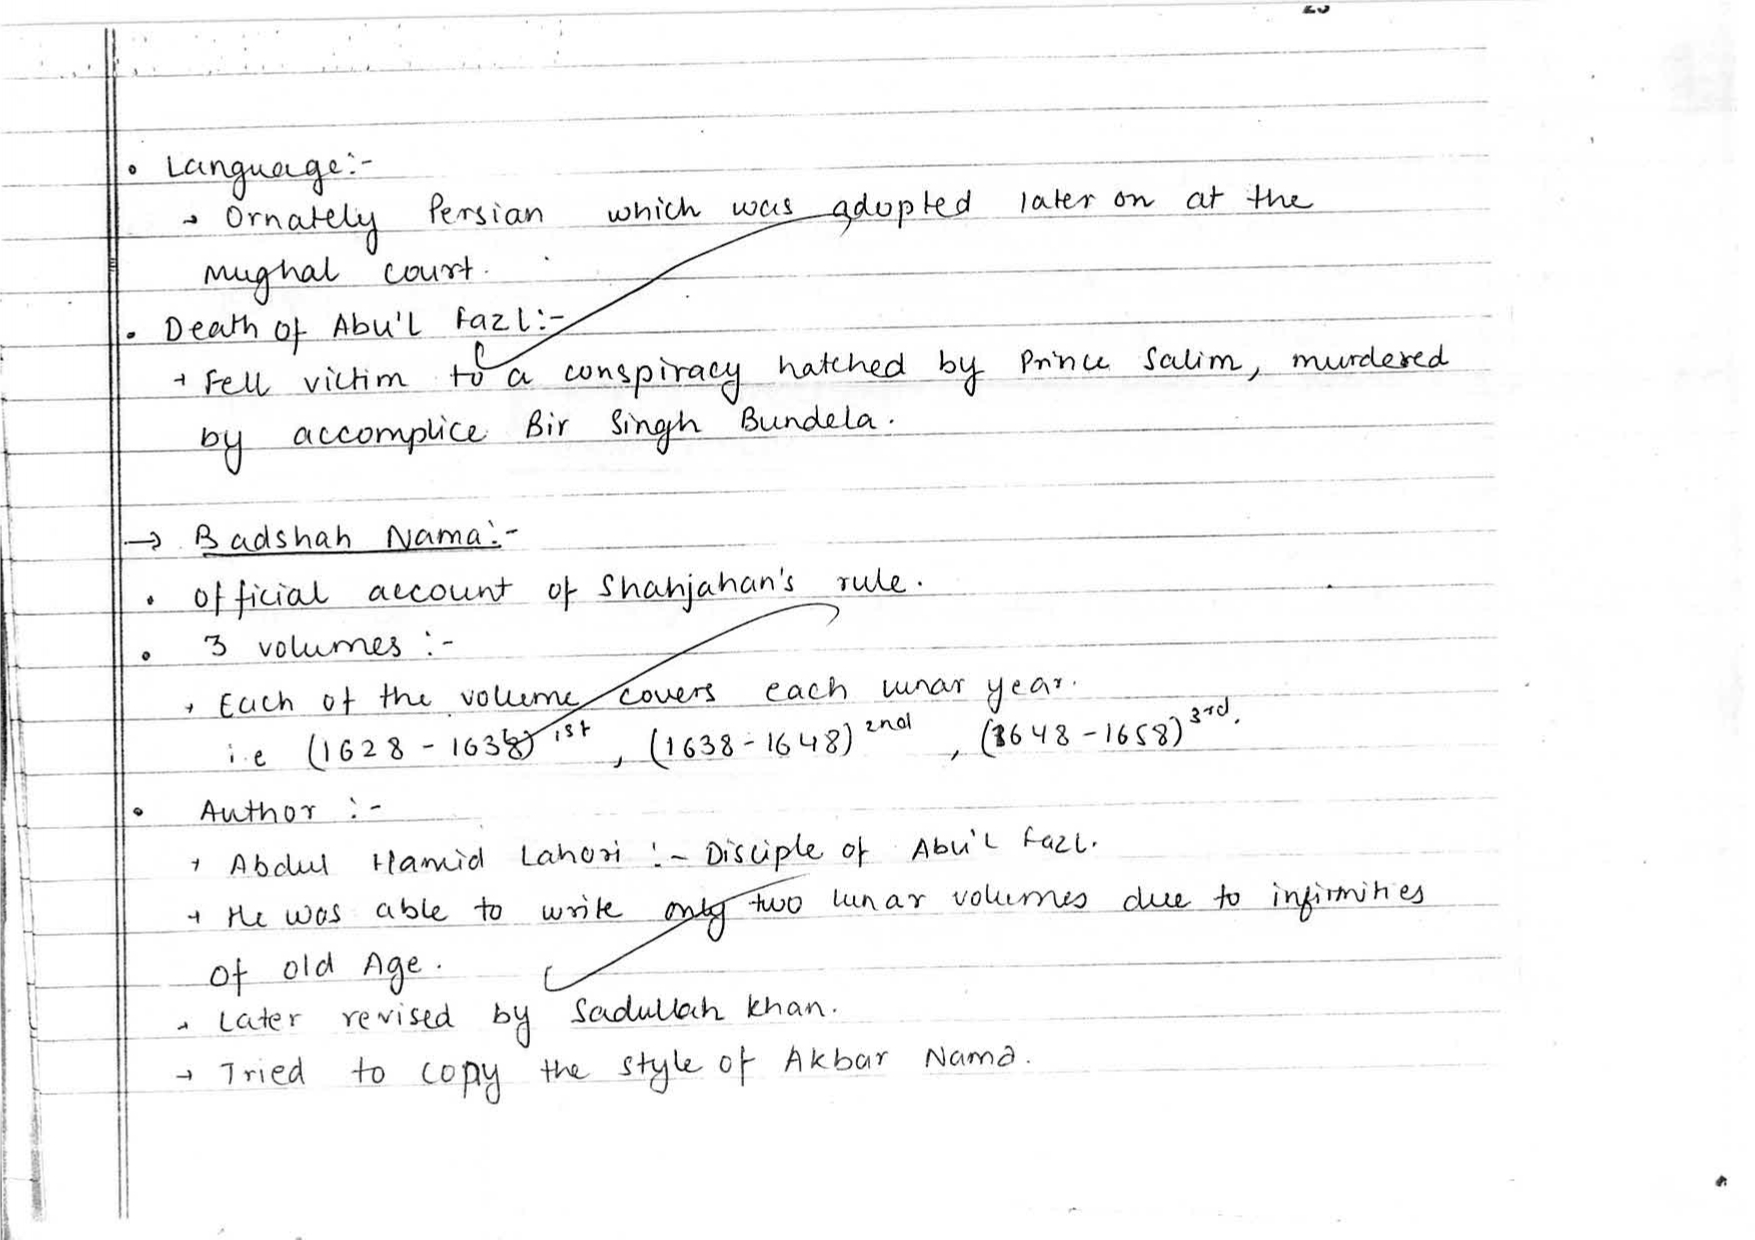 • Language:-
→ Ornately Persian which was adopted later on at the
Mughal court.
• Death of Abu'l Fazl:-
→ Fell victim to a conspiracy hatched by Prince Salim, murdered
by accomplice Bir Singh Bundela.
→ Badshah Nama:-
• Official account of Shahjahan's rule.
• 3 volumes :-
→ Each of the volume covers each lunar year.
i.e (1628 - 1638) 1st, (1638 - 1648) 2nd, (1648 - 1658) 3rd.
• Author :-
→ Abdul Hamid Lahori :- Disciple of Abu'l Fazl.
→ He was able to write only two lunar volumes due to infirmities
of old Age.
→ Later revised by Sadullah Khan.
→ Tried to copy the style of Akbar Nama.